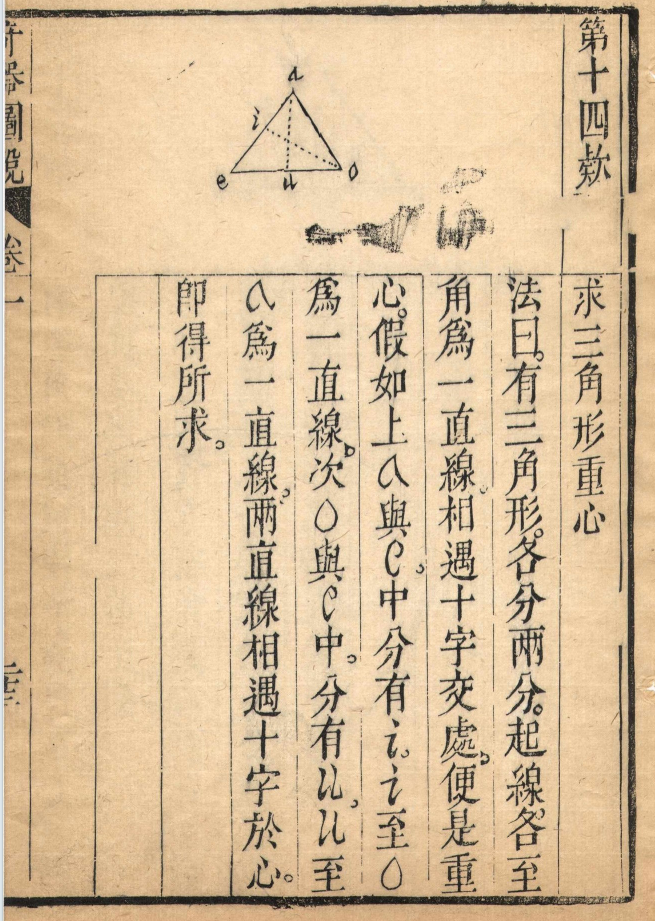 第十四款
a
i
e
u
o
求三角形重心
法曰。有三角形。各分兩分。起線。各至
角爲一直線。相遇十字交處。便是重
心。假如上a與e。中分有i。i至o
爲一直線。次o與e中。分有u。u至
a爲一直線。兩直線相遇十字於心。
卽得所求。
奇器圖說
卷一